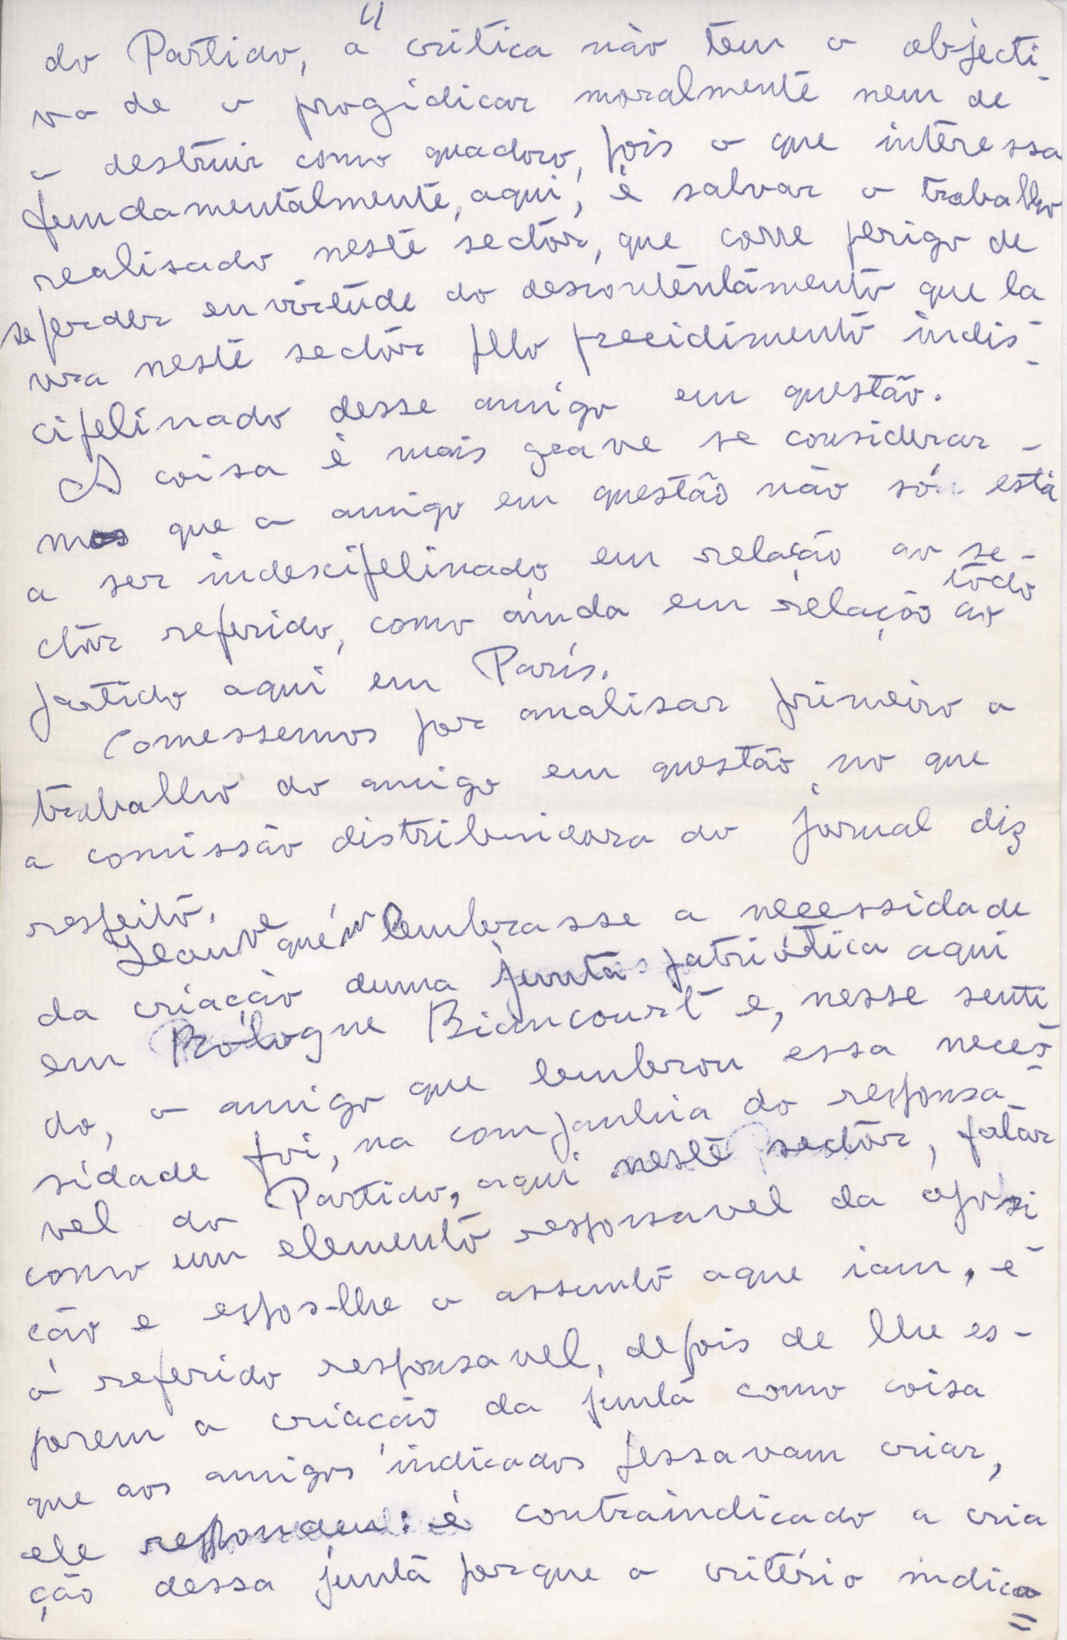 do Partido, a critica não tem o objecti-
vo de o progidicar moralmente nem de
o destruir como quadoro, pois o que interessa
fundamentalmente, aqui, é salvar o trabalho
realisado neste sector, que corre perigo de
se perder en virtude do descontentamento que la
vra neste sector pelo precidimento indis-
cipelinado desse amigo em questão.
A coisa é mais grave se considerar-
mos que o amigo em questão não só está
a ser indescipelinado em relação ao se-
ctor referido, como ainda em relação ao todo
partido aqui em Paris.
Comessemos por analisar primeiro o
trabalho do amigo em questão no que
a comissão distribuidora do jornal diz
respeito.
quem lembrasse a necessidade
da criação duma junta patriótica aqui
em Bologne Biancourt e, nesse senti
do, o amigo que lembrou essa neces-
sidade foi, na companhia do responsa-
vel do Partido, aqui neste sector, falar
como um elemento responsavel da oposi
ção e espos-lhe o assunto aque iam, e
o referido responsavel, depois de lhe es-
porem a criação da junta como coisa
que aos amigos indicados pessavam criar,
ele respondeu: é contraindicado a cria
ção dessa junta porque o critério indica
=